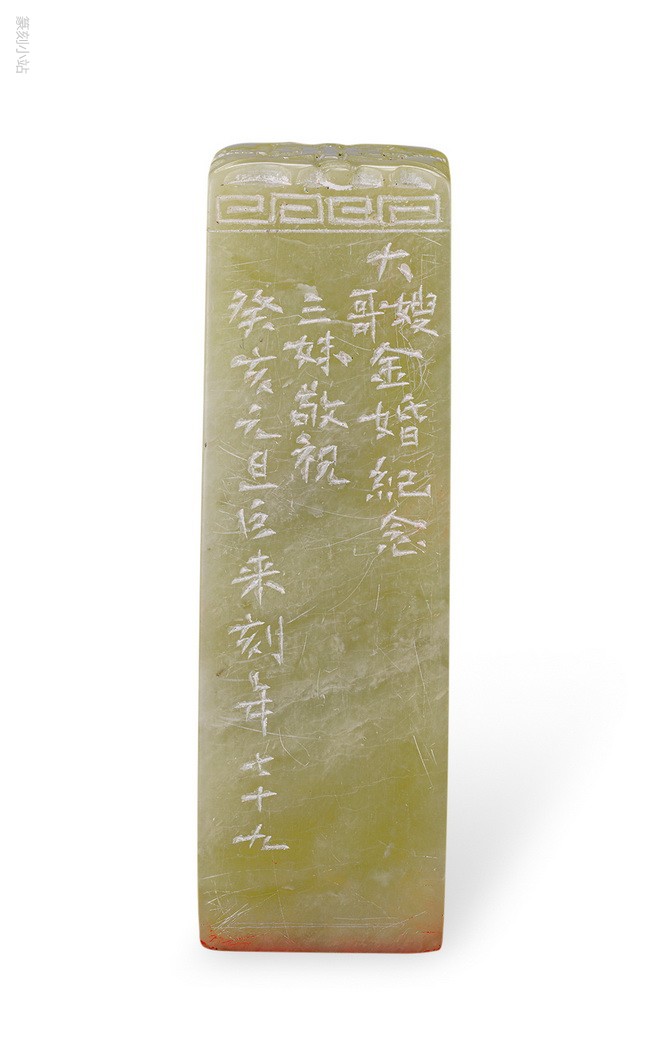 大哥嫂金婚紀念
三妹敬祝
癸亥元旦巨来刻年七十九
篆刻小站